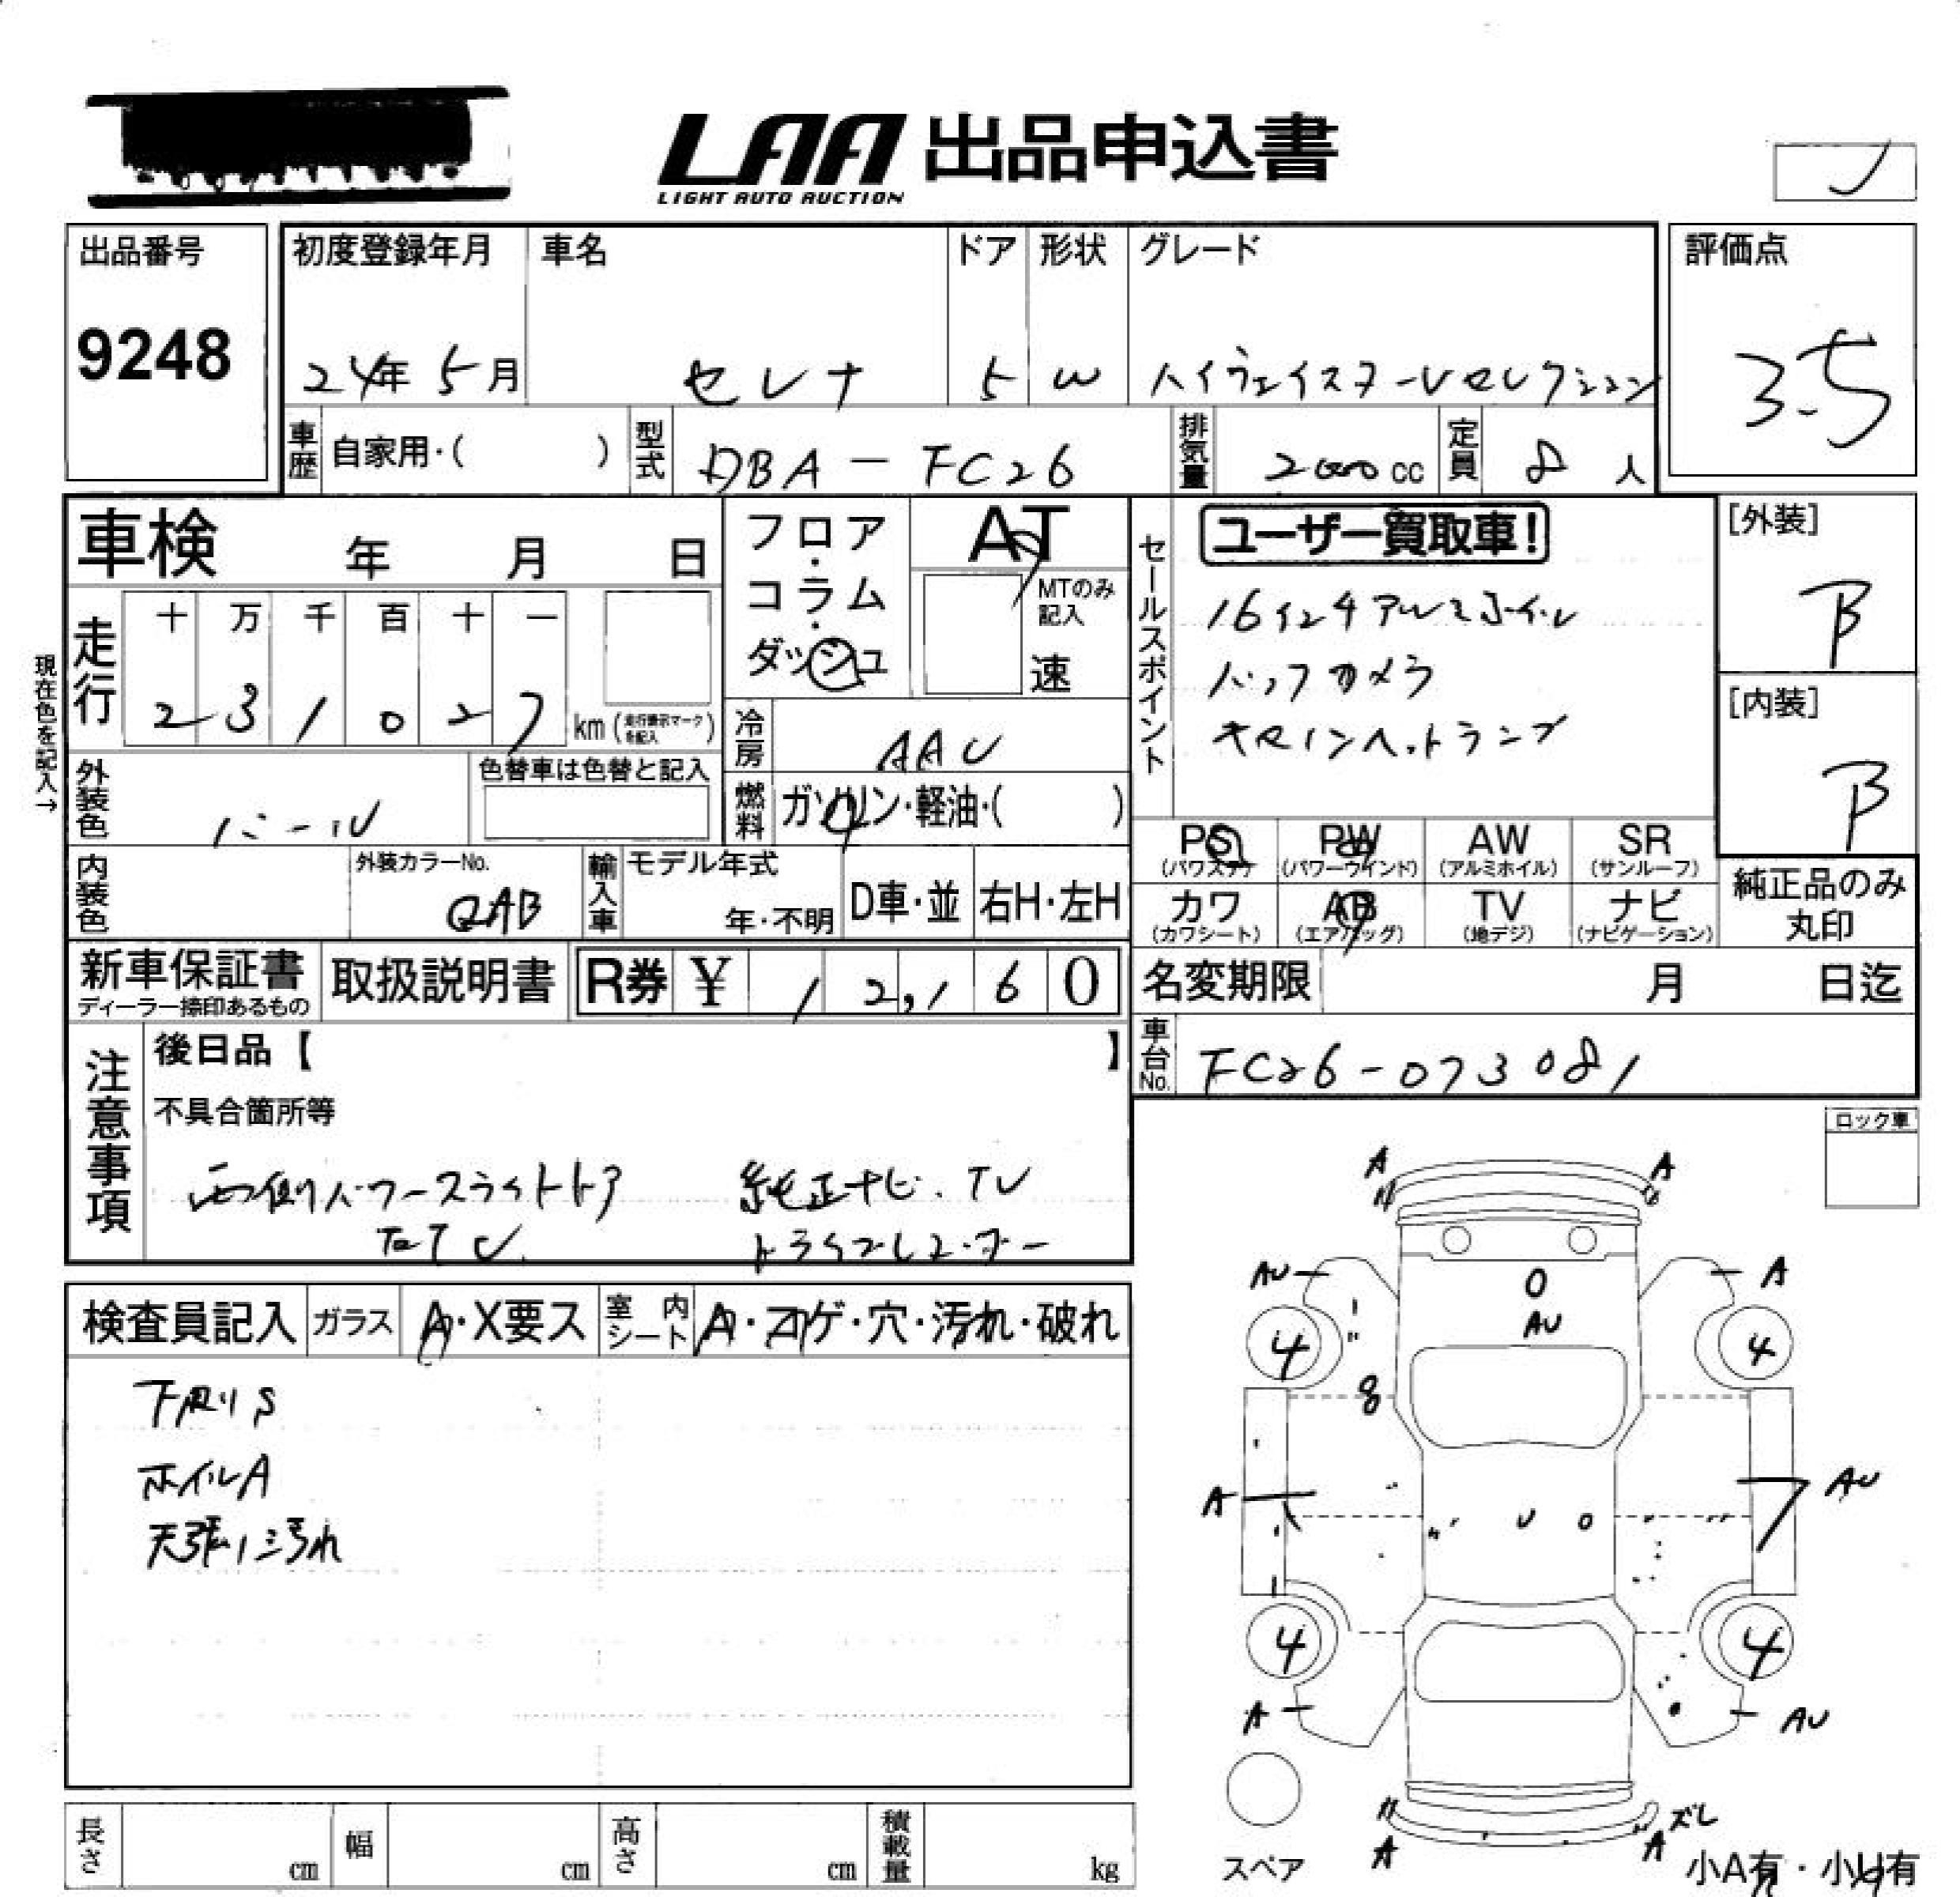 LAA 出品申込書
LIGHT AUTO AUCTION
出品番号
9248
初度登録年月
24年 5月
車名
セレナ
ドア
5
形状
W
グレード
ハイウェイスターVセレクション
評価点
3.5
車歴
自家用・( )
型式
DBA-FC26
排気量
2000 cc
定員
8 人
車検 年 月 日
フロア・コラム・ダッシュ
AT
MTのみ記入
速
走行
十 万 千 百 十 一
2 3 1 0 2 7
km (走行表示マークを記入)
現在色を記入→
冷房
AAC
燃料
ガソリン・軽油・( )
外装色
パール
色替車は色替と記入
内装色
外装カラーNo.
QAB
輸入車
モデル年式
年・不明
D車・並
右H・左H
セールスポイント
ユーザー買取車!
16インチアルミホイル
バックカメラ
キセノンヘッドランプ
[外装]
B
[内装]
B
PS
(パワステ)
PW
(パワーウインド)
AW
(アルミホイル)
SR
(サンルーフ)
カワ
(カワシート)
AB
(エアバッグ)
TV
(地デジ)
ナビ
(ナビゲーション)
純正品のみ
丸印
新車保証書
ディーラー捺印あるもの
取扱説明書
R券 ¥ 12,160
名変期限 月 日迄
車台No.
FC26-073081
注意事項
後日品【 】
不具合箇所等
両側パワースライドドア 純正ナビ.TV
ETC. ドライブレコーダー
ロック車
検査員記入
ガラス
A・X要ス
室内シート
A・コゲ・穴・汚れ・破れ
下廻りS
ホイルA
天張り汚れ
A A
AU A
AU
4 4
8
A AU
U
4 4
A AU
ズレ
A A
スペア
小A有・小U有
長さ cm
幅 cm
高さ cm
積載量 kg